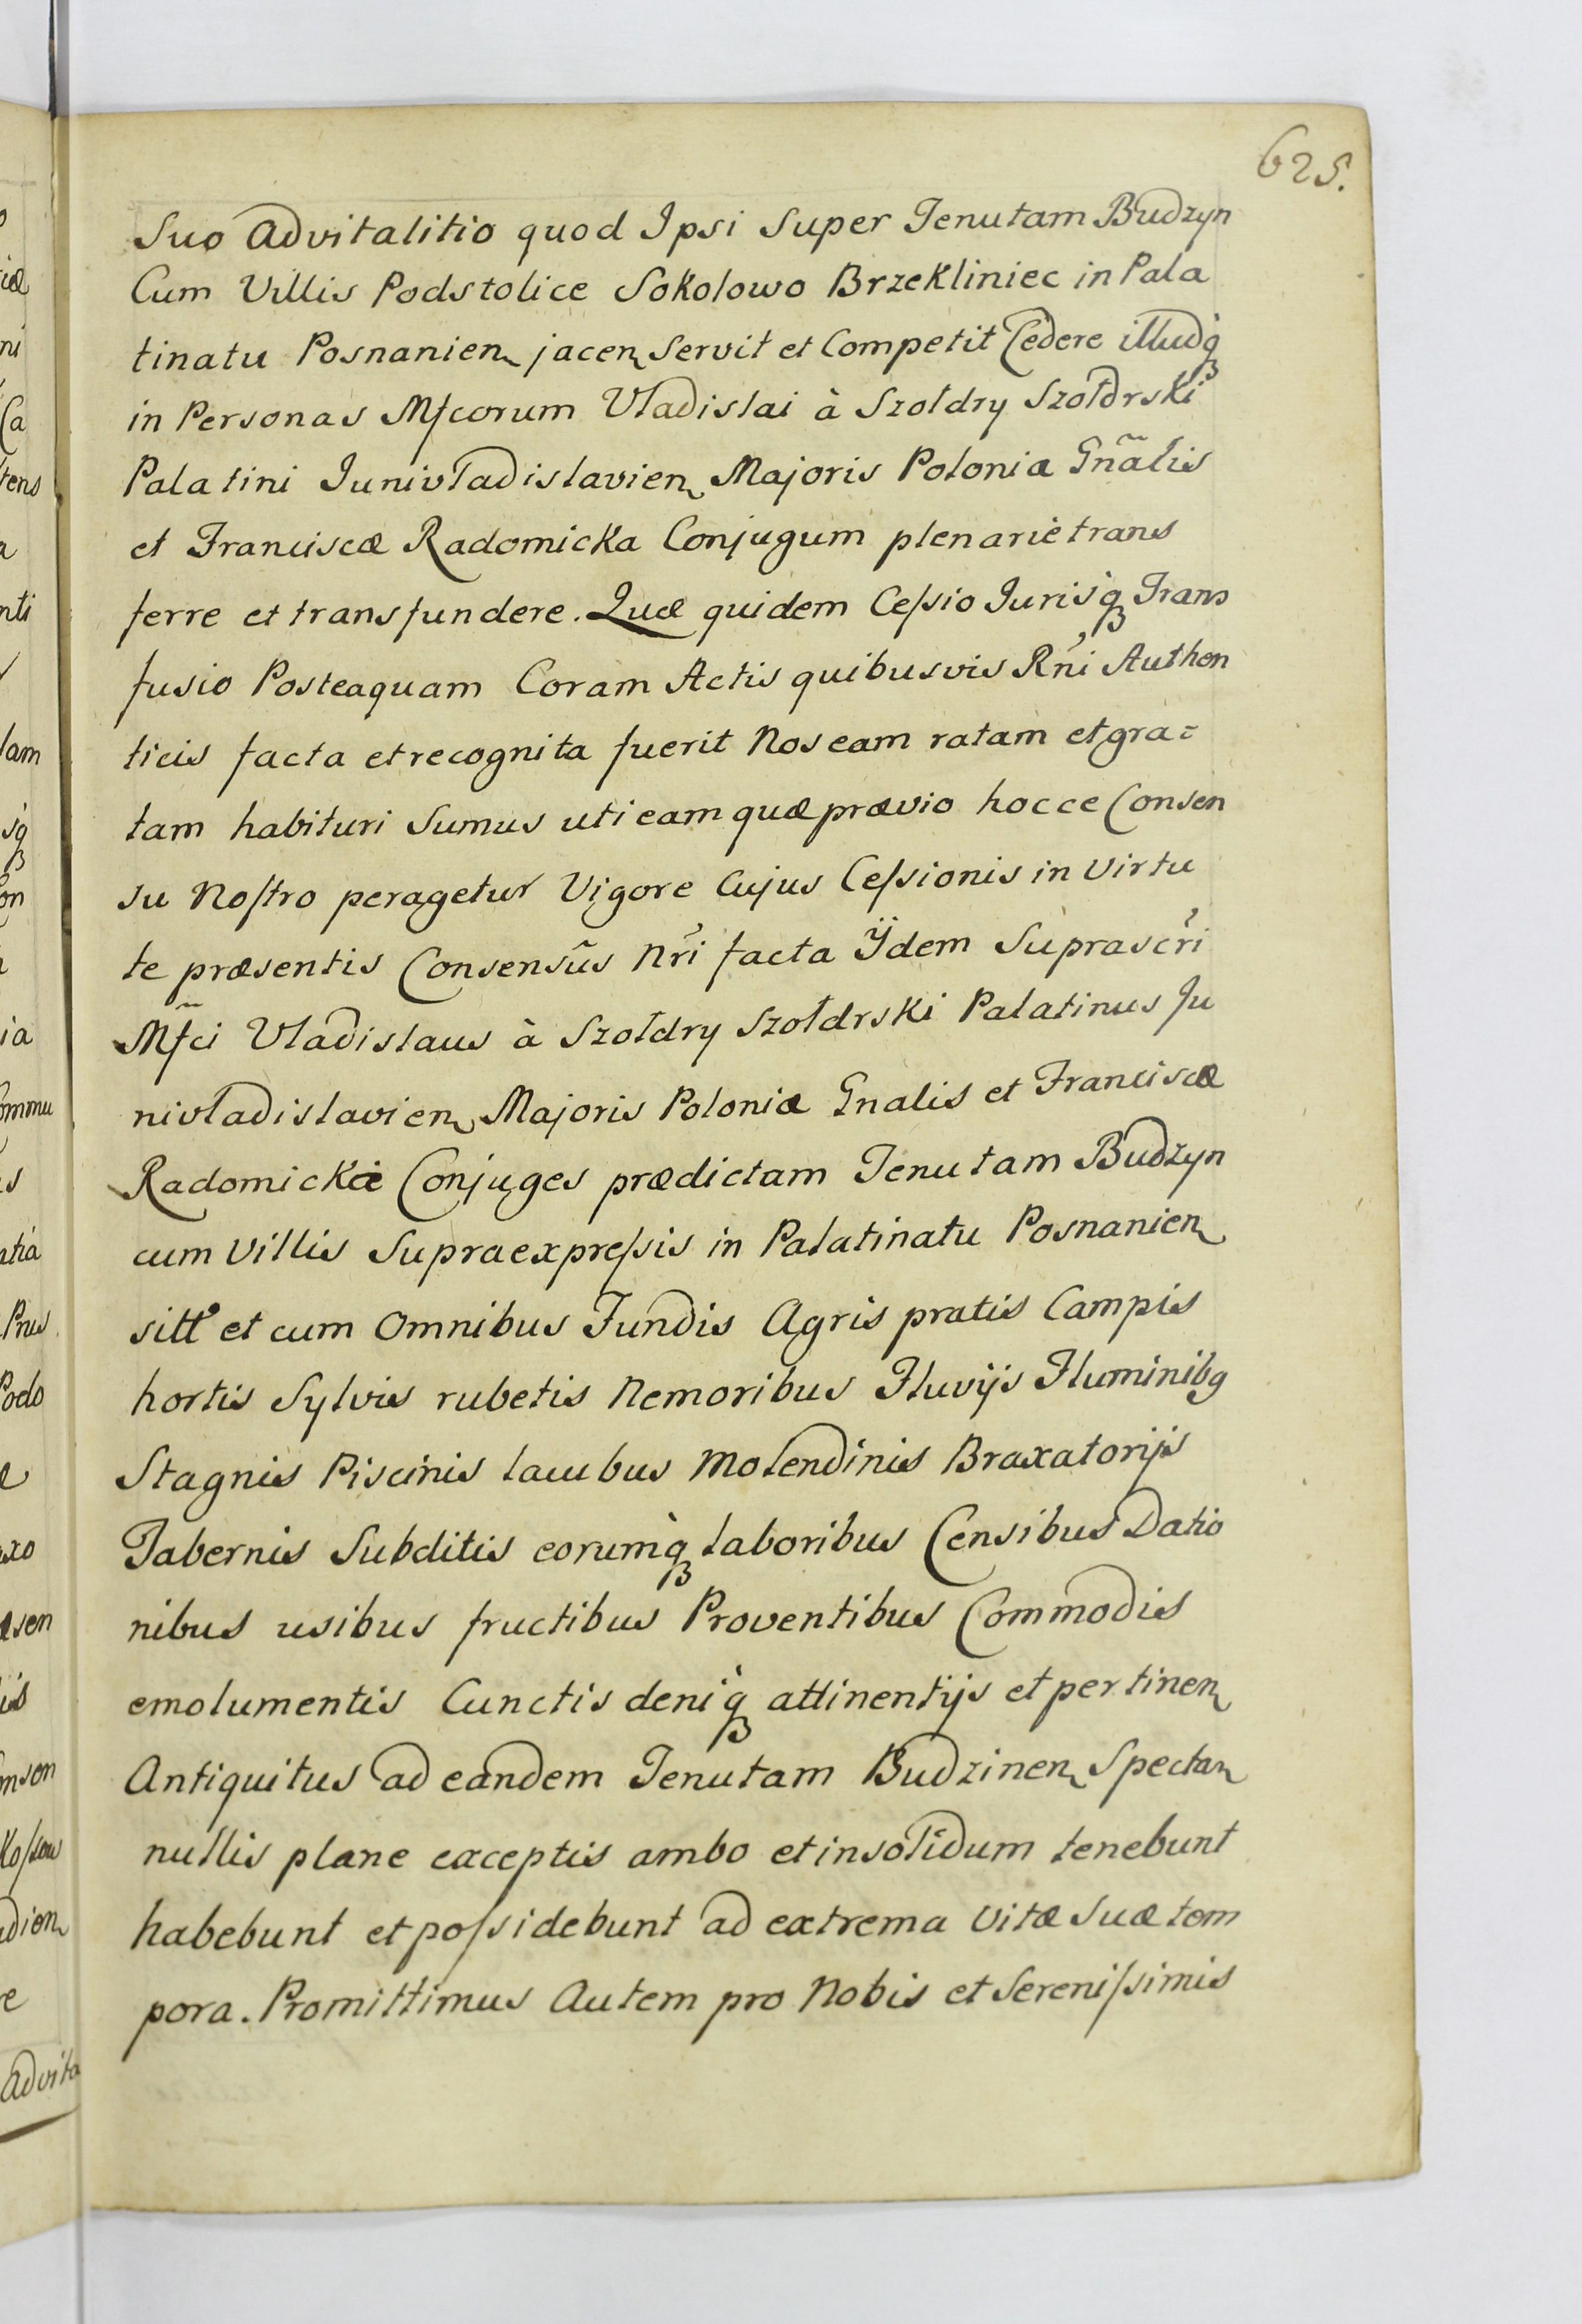 625.
Suo Advitalitio quod Ipsi Super Tenutam Budzyn
Cum Villis Podstolice Sokolowo Brzekliniec in Pala
tinatu Posnanien jacen Servit et Competit Cedere illudq
in Personas Mfcorum Vladislai à Szołdry Szołdrski
Palatini Junivladislavien Majoris Polonia Gñalis
et Franciscæ Radomicka Conjugum plenariè trans
ferre et transfundere. Quæ quidem Ceſsio Jurisq Trans
fusio Posteaquam Coram Actis quibusvis Rñi Authen
ticis facta et recognita fuerit Nos eam ratam et gra=
tam habituri Sumus uti eam quæ prævio hocce Consen
su Noſtro peragetur Vigore Cujus Ceſsionis in Virtu
te præsentis Consensûs Nri facta Ÿdem Suprascri
Mfci Vladislaus à Szołdry Szołdrski Palatinus Ju
nivladislavien Majoris Poloniæ Gnalis et Franciscæ
Radomickæ Conjuges prædictam Tenutam Budzyn
cum Villis Supraexpreſsis in Palatinatu Posnanien
sitt et cum Omnibus Fundis Agris pratis Campis
hortis Sylvis rubetis Nemoribus Fluvijs Fluminibg
Stagnis Piscinis lacubus Molendinis Braxatorijs
Tabernis Subditis eorumq laboribus Censibus Datio
nibus usibus fructibus Proventibus Commodis
emolumentis Cunctis deniq attinentijs et pertinen
Antiquitus ad eandem Tenutam Budzinen Spectan
nullis plane exceptis ambo et insolidum tenebunt
habebunt et poſsidebunt ad extrema Vitæ Suæ tem
pora. Promittimus Autem pro Nobis et Sereniſsimis